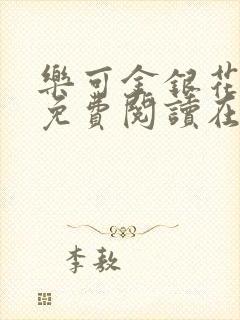 樂可金銀花
免費閱讀在
李敖